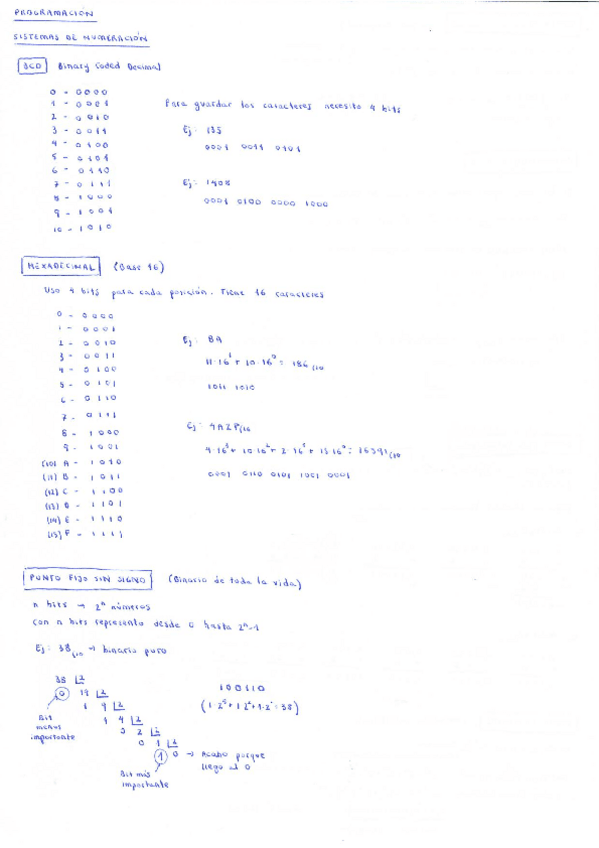 PROGRAMACIÓN
SISTEMAS DE NUMERACIÓN
BCD Binary Coded Decimal
0 - 0000
1 - 0001
2 - 0010
3 - 0011
4 - 0100
5 - 0101
6 - 0110
7 - 0111
8 - 1000
9 - 1001
10 - 1010
Para guardar los caracteres necesito 4 bits
Ej: 135
0001 0011 0101
Ej: 1408
0001 0100 0000 1000
HEXADECIMAL (Base 16)
Uso 4 bits para cada posición. Tiene 16 caracteres
0 - 0000
1 - 0001
2 - 0010
3 - 0011
4 - 0100
5 - 0101
6 - 0110
7 - 0111
8 - 1000
9 - 1001
(10) A - 1010
(11) B - 1011
(12) C - 1100
(13) D - 1101
(14) E - 1110
(15) F - 1111
Ej: BA
11·16¹ + 10·16⁰ = 186/10
1011 1010
Ej:
0001 0110 0101 1001 0001
PUNTO FIJO SIN SIGNO (Binario de toda la vida)
n bits → 2ⁿ números
Con n bits represento desde 0 hasta 2ⁿ-1
Ej: 38/10 → binario puro
38 2
0 19 2
1 9 2
1 4 2
0 2 2
0 1 2
1 0 → Acabo porque
llego al 0
Bit
menos
importante
Bit más
importante
100110
(1·2⁵+1·2²+1·2¹=38)